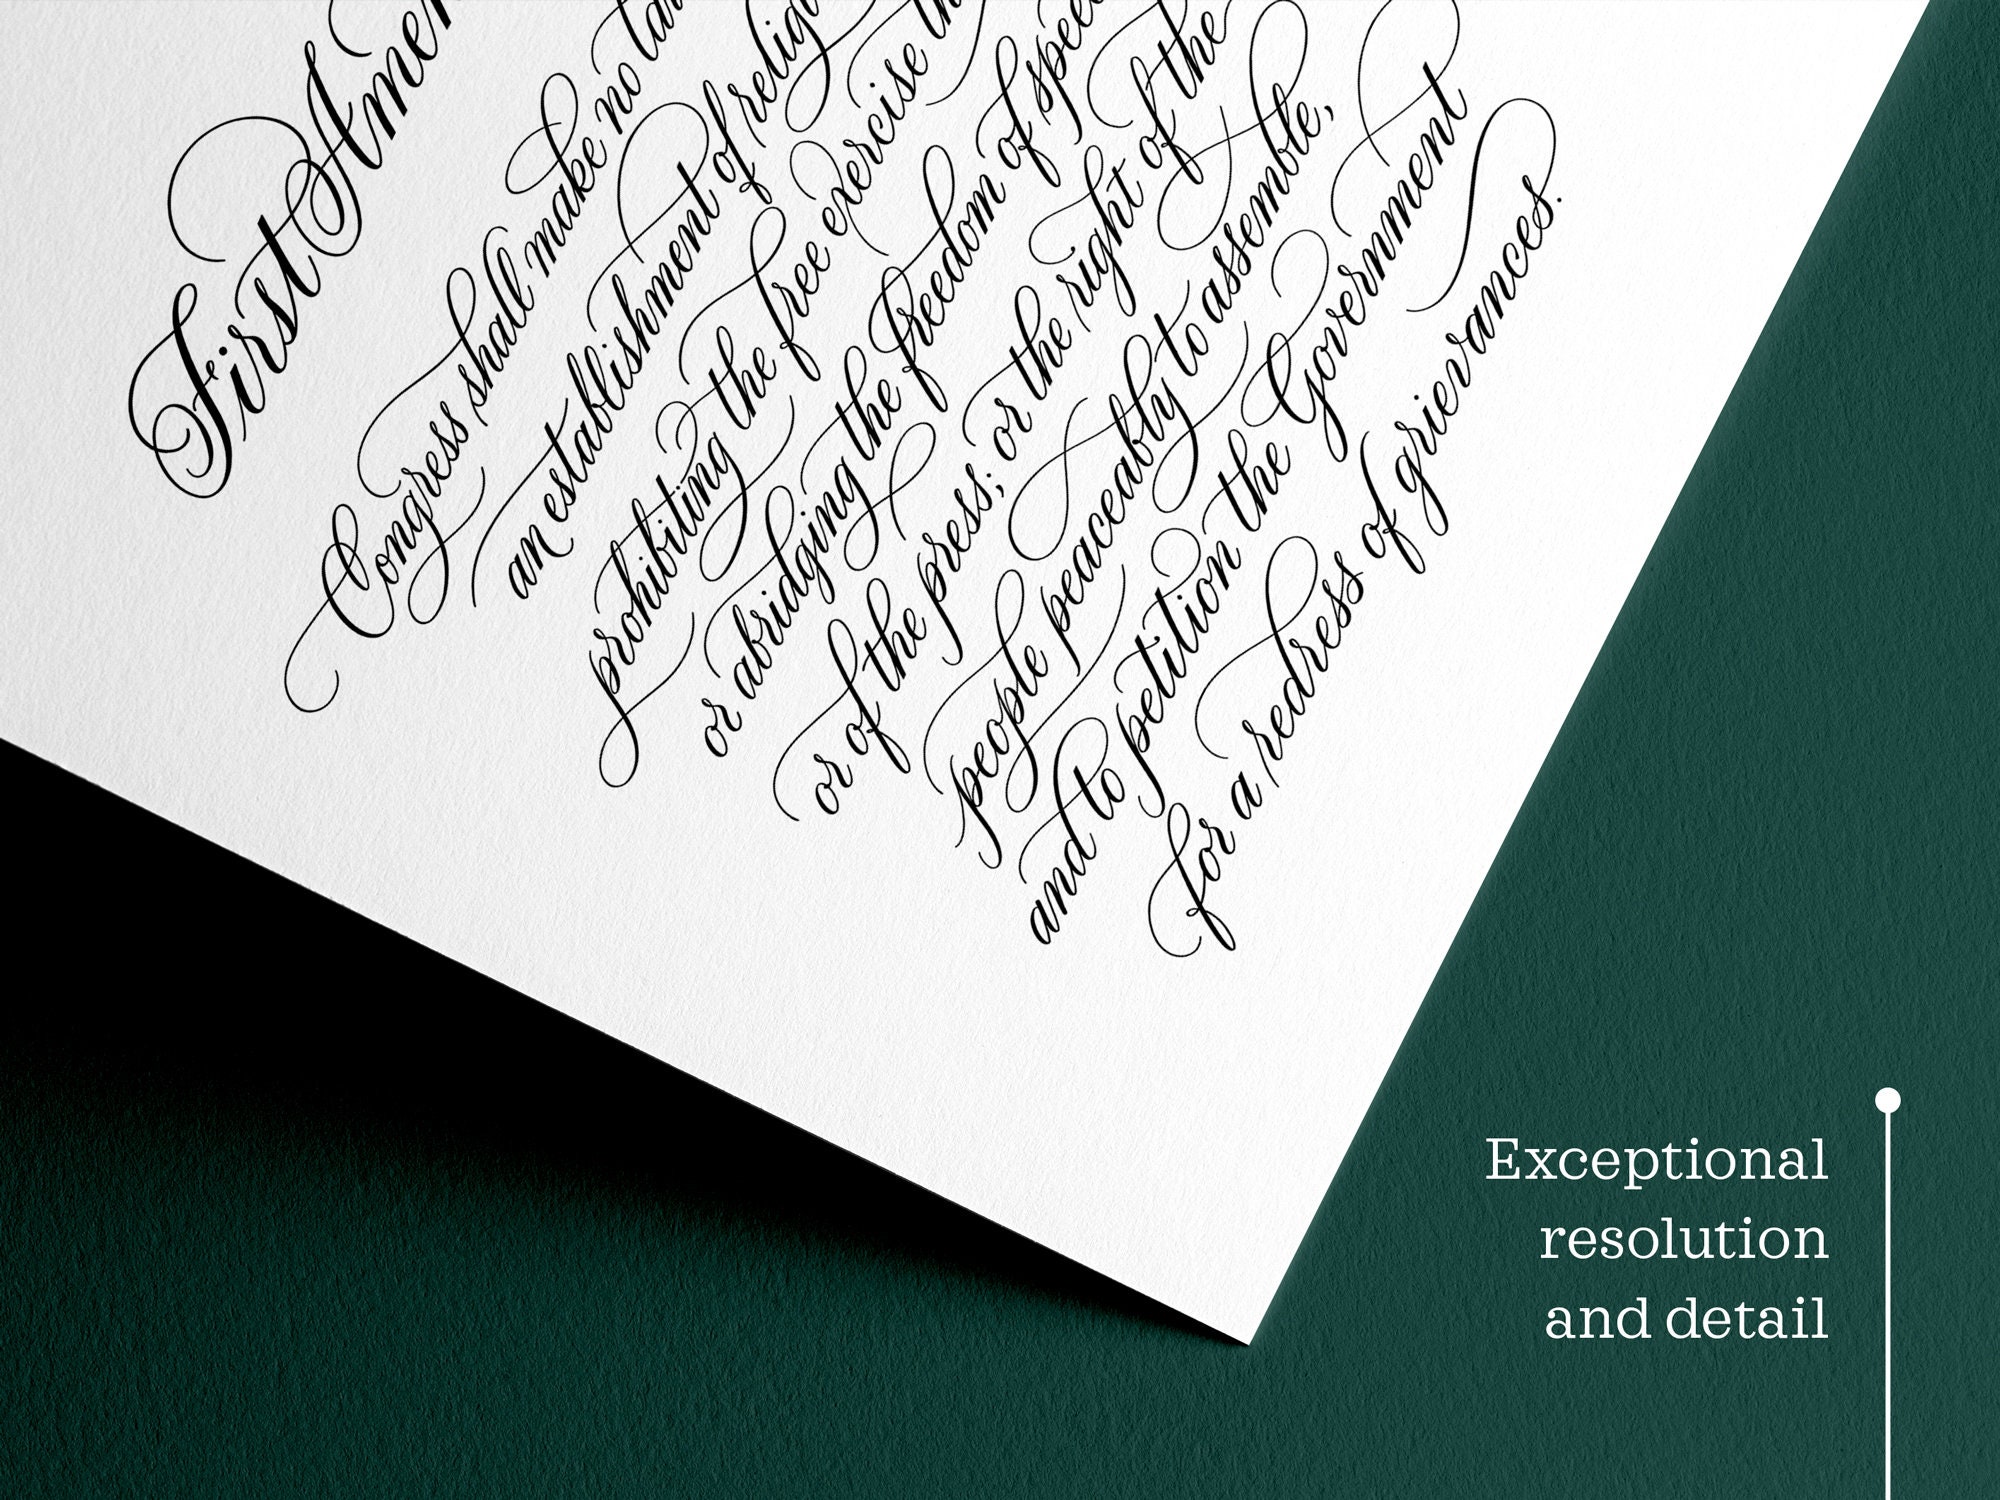 First Amen
Congress shall make no la
an establishment of relig
prohibiting the free exercise th
or abridging the freedom of speec
or of the press; or the right of the
people peaceably to assemble,
and to petition the Government
for a redress of grievances.
Exceptional
resolution
and detail